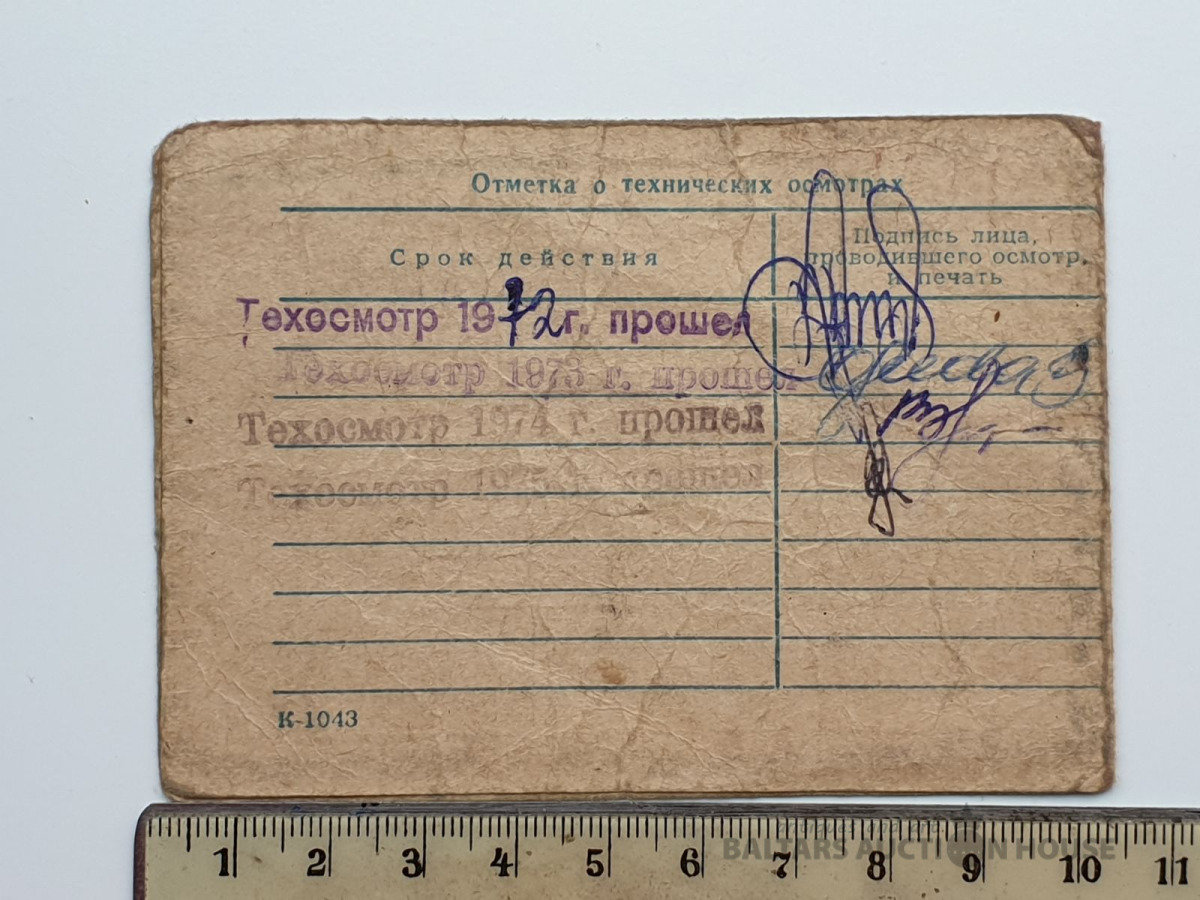 Отметка о технических осмотрах
Срок действия
Подпись лица,
проводившего осмотр,
и печать
Техосмотр 1972 г. прошел
Техосмотр 1973 г. прошел
Техосмотр 1974 г. прошел
Техосмотр 1975 г. прошел
К-1043
antiques and art
BALTARS AUCTION HOUSE
1 2 3 4 5 6 7 8 9 10 11